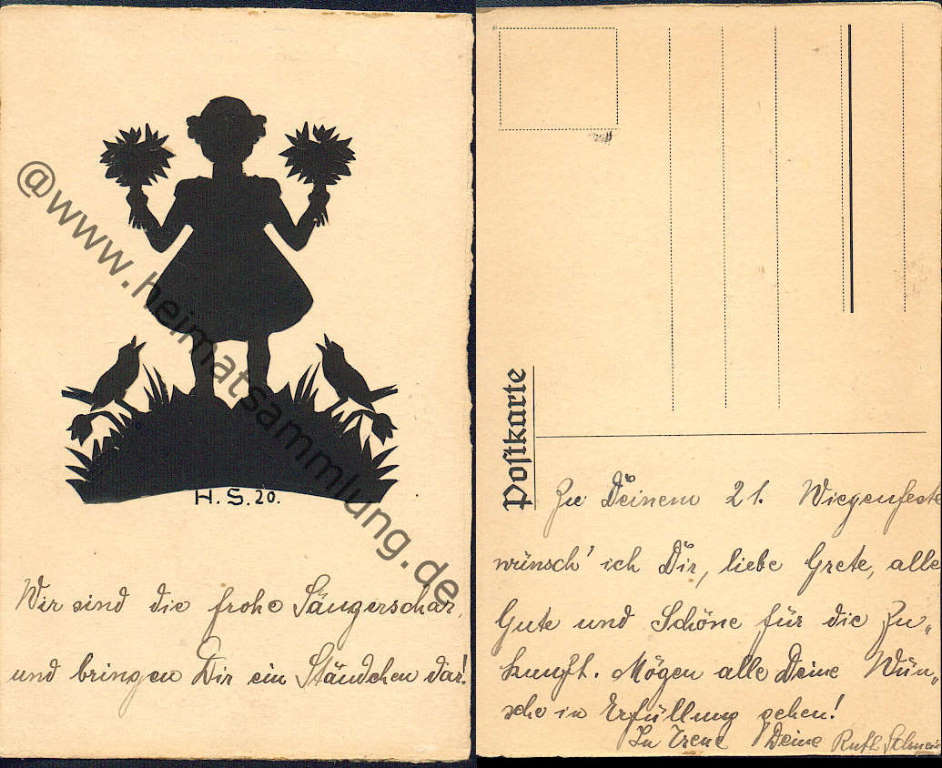 @www.heimatsammlung.de
H. S. 20.
Wir sind die frohe Sängerschar,
und bringen Dir ein Ständchen dar!
Postkarte
Zu Deinem 21. Wiegenfeste
wünsch' ich Dir, liebe Grete, alles
Gute und Schöne für die Zu„
kunft. Mögen alle Deine Wün„
sche in Erfüllung gehen!
In Treue Deine Ruth